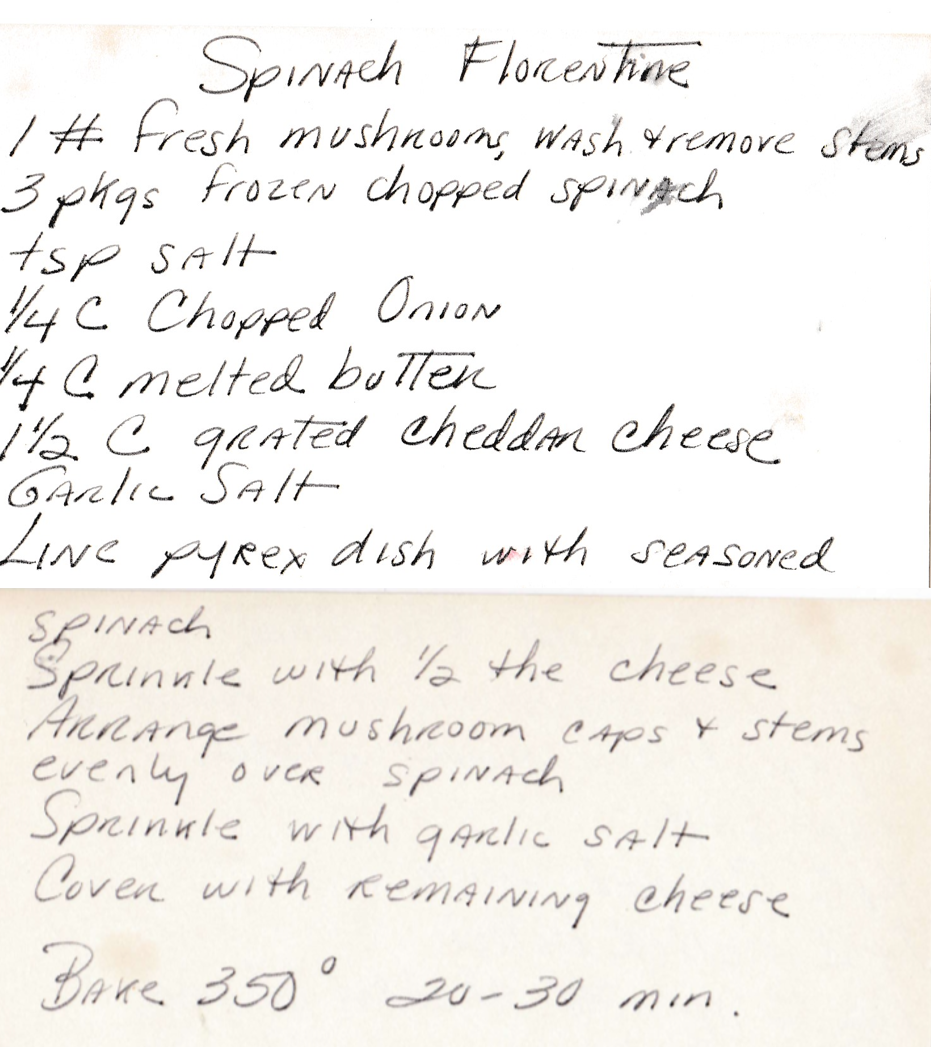 Spinach Florentine
1 # fresh mushrooms, wash & remove stems
3 pkgs frozen chopped spinach
tsp salt
1/4 C Chopped Onion
1/4 C melted butter
1 1/2 C grated cheddar cheese
Garlic Salt
Line pyrex dish with seasoned
spinach
Sprinkle with 1/2 the cheese
Arrange mushroom caps & stems
evenly over spinach
Sprinkle with garlic salt
Cover with remaining cheese
Bake 350° 20-30 min.